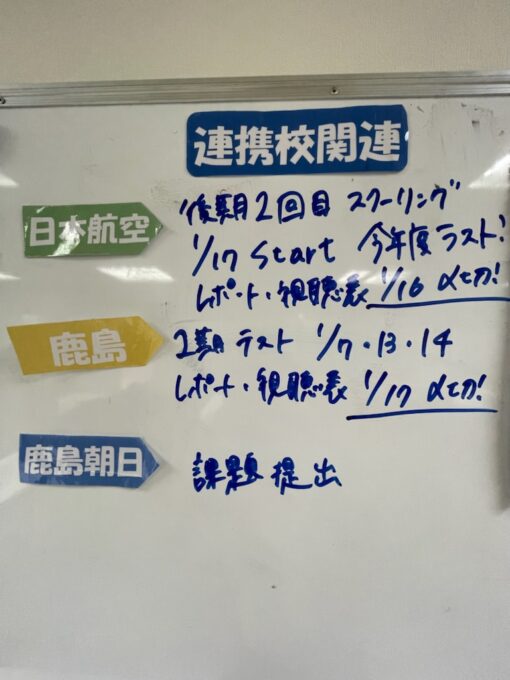 連携校関連
日本航空
後期2回目 スクーリング
1/17 Start 今年度ラスト!
レポート・視聴表 1/16 〆切!
鹿島
2期テスト 1/7・13・14
レポート・視聴表 1/17 〆切!
鹿島朝日
課題提出